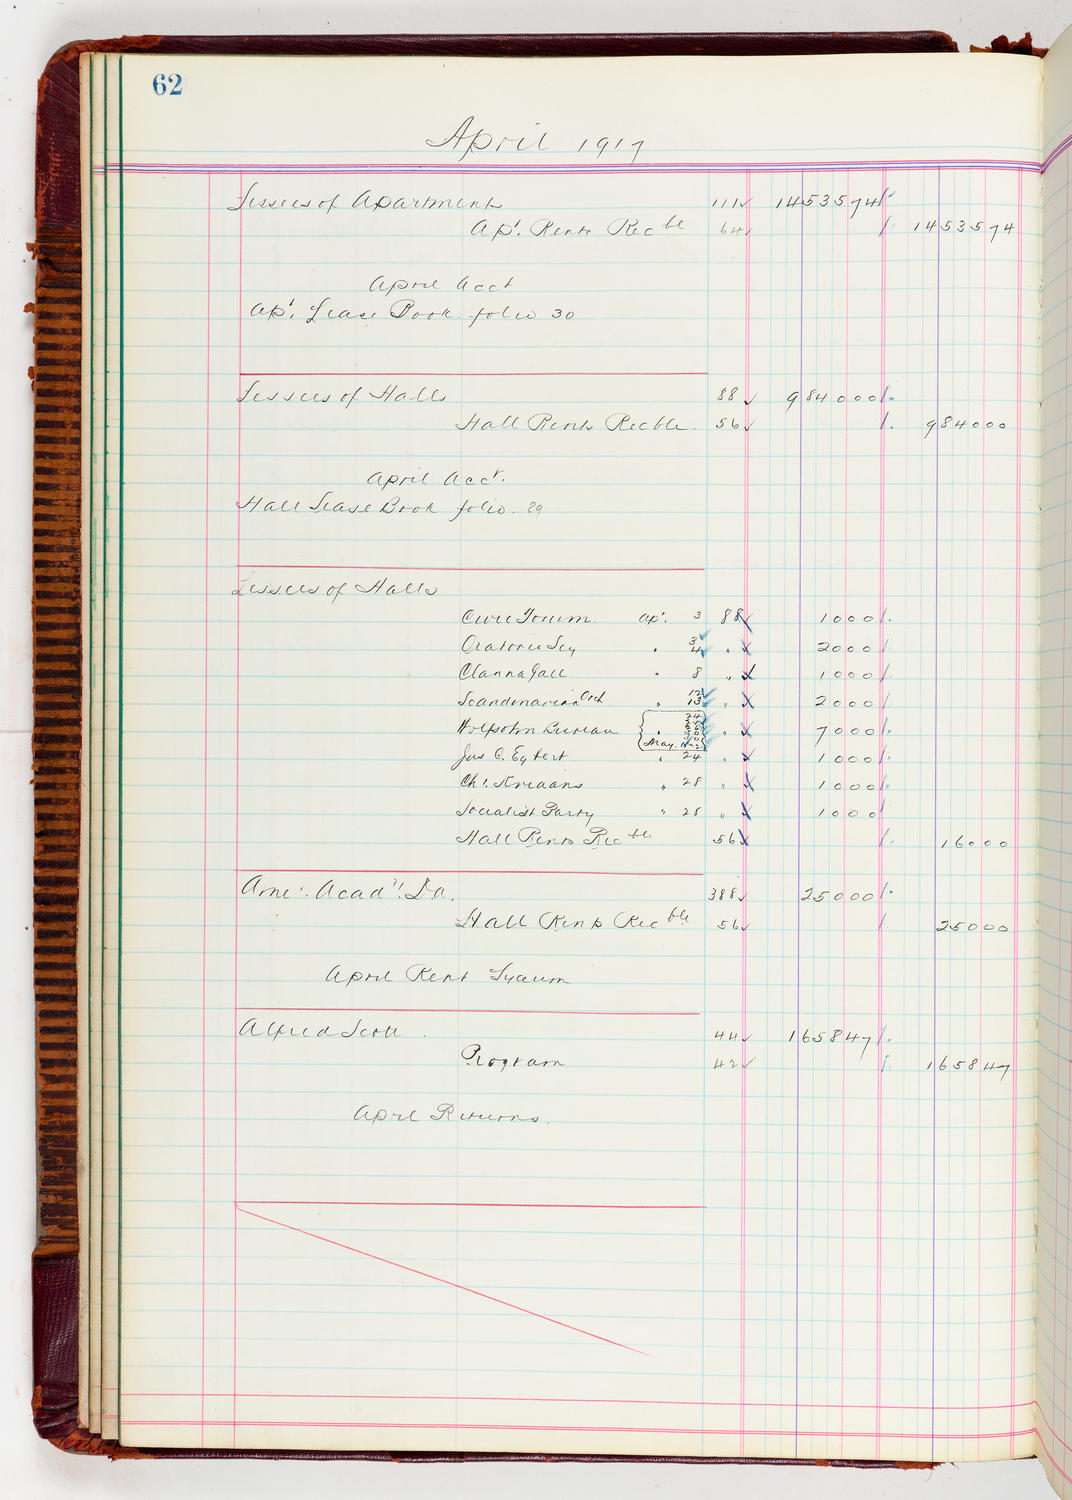 62
April 1917
Lessees of Apartments 111 14535 74
Apt. Rents Recble 64 14535 74
April Acct
Apt. Lease Book folio 30
Lessees of Halls 88 9840 00
Hall Rents Recble. 56 9840 00
April Acct.
Hall Lease Book folio. 89
Lessees of Halls
Civic Forum. Ap'. 3 88 10 00
Oratorio Scy " 3 4 " 20 00
Clanna Gael " 8 " 10 00
Scandinavian Orch " 12 13 " 20 00
Wolfsohn Bureau " 24 May " 70 00
Jas C. Egbert " 24 10 00
Ch. Kriaans " 28 " 10 00
Socialist Party " 28 " 10 00
Hall Rents Recble 56 160 00
Ame. Acad'. Da. 388 250 00
Hall Rents Recble 56 250 00
April Rent Lyceum
Alfred Scott. 44 1658 47
Program 42 1658 47
April Returns.